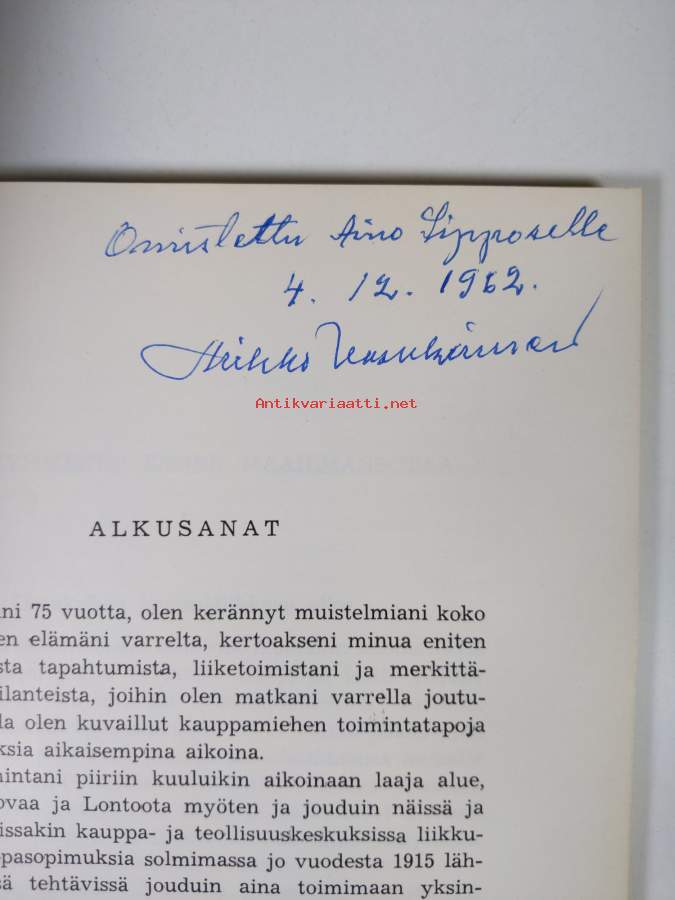 Omistettu Aino Lipposelle
4. 12. 1962.
Heikki
Antikvariaatti.net
ALKUSANAT
ni 75 vuotta, olen kerännyt muistelmiani koko
en elämäni varrelta, kertoakseni minua eniten
sta tapahtumista, liiketoimistani ja merkittä-
ilanteista, joihin olen matkani varrella joutu-
la olen kuvaillut kauppamiehen toimintatapoja
ksia aikaisempina aikoina.
nintani piiriin kuuluikin aikoinaan laaja alue,
ovaa ja Lontoota myöten ja jouduin näissä ja
issakin kauppa- ja teollisuuskeskuksissa liikku-
pasopimuksia solmimassa jo vuodesta 1915 läh-
sä tehtävissä jouduin aina toimimaan yksin-